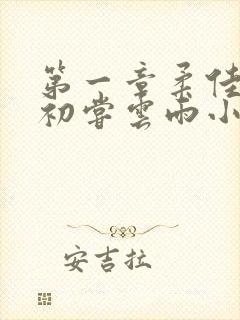 第一章柔佳
初尝雲雨小
安吉拉